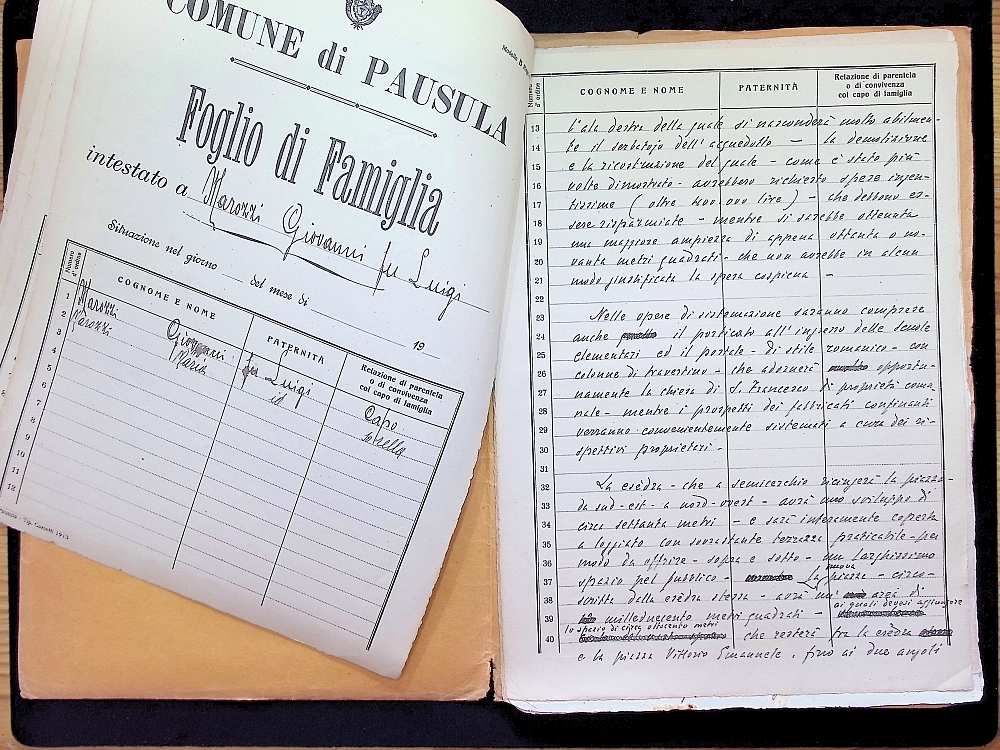 COMUNE di PAUSULA
Foglio di Famiglia
intestato a Marozzi Giovanni fu Luigi
Situazione nel giorno del mese di 19
Numero d'ordine COGNOME E NOME PATERNITÀ Relazione di parentela o di convivenza col capo di famiglia
1 Marozzi Giovanni fu Luigi Capo
2 Marozzi Maria id sorella
3
4
5
6
7
8
9
10
11
12
Numero d'ordine COGNOME E NOME PATERNITÀ Relazione di parentela o di convivenza col capo di famiglia
13 l'ala destra della quale si nasconderà molto abilmen-
14 te il serbatoio dell'acquedotto — la demolizione
15 e la ricostruzione del quale - come è stato più
16 volte dimostrato - avrebbero richiesto spese ingen-
17 tissime ( oltre 400.000 lire ) - che debbono es-
18 sere risparmiate - mentre si sarebbe ottenuta
19 una maggiore ampiezza di appena ottanta o no-
20 vanta metri quadrati - che non avrebbe in alcun
21 modo giustificata la spesa cospicua -
22
23 Nelle opere di sistemazione saranno comprese
24 anche il porticato all'ingresso delle scuole
25 elementari ed il portale - di stile romanico - con
26 colonne di travertino - che adornerà opportu-
27 namente la chiesa di S. Francesco di proprietà comu-
28 nale - mentre i prospetti dei fabbricati confinanti
29 verranno convenientemente sistemati a cura dei ri-
30 spettivi proprietari -
31
32 La esèdra - che a semicerchio ricingerà la piazza
33 da sud-est - a nord-ovest - avrà uno sviluppo di
34 circa settanta metri - e sarà interamente coperta
35 a loggiato con soprastante terrazza praticabile - per
36 modo da offrire - sopra e sotto - un larghissimo
37 spazio pel pubblico - La nuova piazza - circo-
38 scritta dalla esèdra stessa - avrà un' area di
39 milleduecento metri quadrati - ai quali devesi aggiungere
40 lo spazio di circa ottocento metri che resterà fra la esèdra
e la piazza Vittorio Emanuele, fino ai due angoli